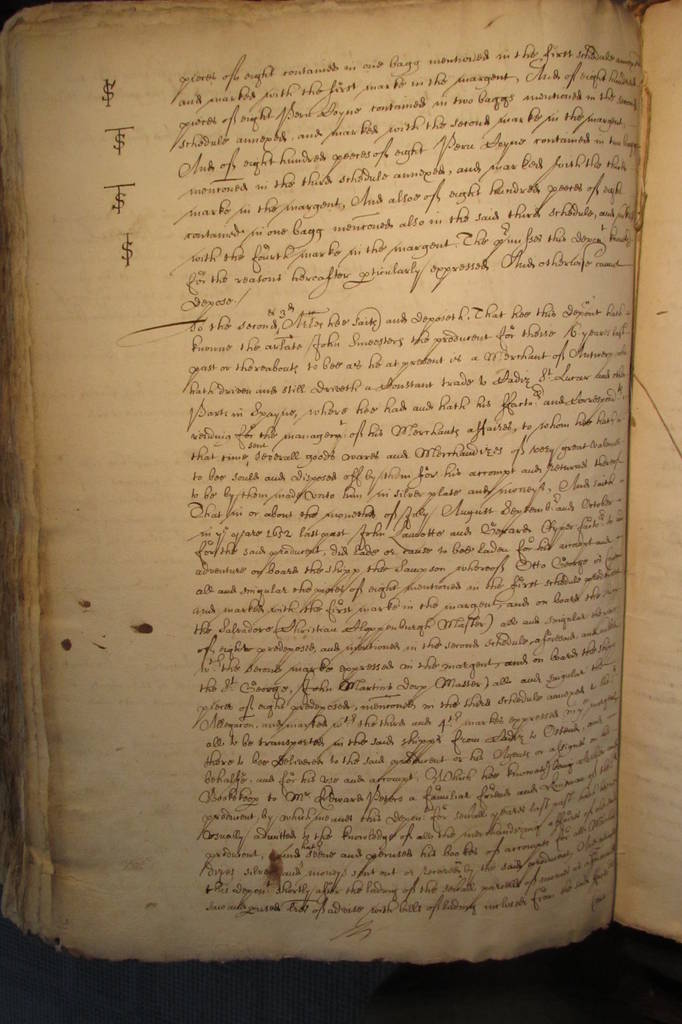 peeces of eight contained in one bagg mentioned in the first schedule annexed
and marked with the first marke in the margent, And of eight hundred
peeces of eight Peru Coyne contained in two baggs mentioned in the second
schedule annexed, and marked with the second marke in the margent,
And of eight hundred peeces of eight Peru Coyne contained in two baggs
mentioned in the third schedule annexed, and marked with the third
marke in the margent, And alsoe of eight hundred peeces of eight
contained in one bagg mentioned also in the said third schedule, and marked
with the fourth marke in the margent. The p'misses this depon.t
for the reasons hereafter p'ticularly expressed, And otherwise cannot
depose./
To the second & 3.d Arles hee saith and deposeth, That hee this depon.t hath
knowne the arlate John the producent for theise 6 yeares last
past or thereabouts to bee as he at present is a Merchant of Antwerp who
hath driven and still driveth a constant trade to Cadiz S.t Lucar and other
Ports in Spayne, where hee had and hath his ffactors and Correspond.ts
residing for the managem.t of his Merchants affaires, to whom hee hath
that time, sent severall goods wares and Merchandizes of very great valewes
to bee sould and disposed off by them for his accompt and returnes thereof
to be by them made unto him in silver plate and moneys, And saith
That in or about the moneths of July August September and October
in y.e yeare 1652 last past John and Gerard
for the said producent, did lade or cause to bee laden for his accompt and
adventure on board the shipp the Sampson whereof Otto George is
all and singular the peeces of eight mentioned in the first schedule
and marked with the first marke in the margent, and on board the
the Salvador (Christian Cloppenburgh Master) all and singular the peeces
of eight predeposed, and mentioned in the second schedule aforesaid, and
w.th the second marke expressed in the margent, and on board the shipp
the S.t George, John Martins Dorp Master) all and singular the
peeces of eight predeposed, mentioned in the third schedule annexed to the
Allegacon, and marked w.th the third and 4.th markes expressed in y.e margent
all to be transported in the said shipps from Cadiz to Ostend, and
there to bee delivered to the said producent or his Agents or assignes on his
behalfe, and for his use and accompt. Which hee knoweth being
Bookekeep to M.r Edward Peters a familiar friend and of the
producent, by which meanes this depon.t for severall yeares last past hath
usually admitted to the knowledge of all the merchandizing affaires of
producent, and hath seene and perused his bookes of accompts for all
silver and moneys sent out or received by the said producent,
this depon.t shortly after the lading of the severall parcells of
saw and perused lres of advise with bills of lading inclosed from the said